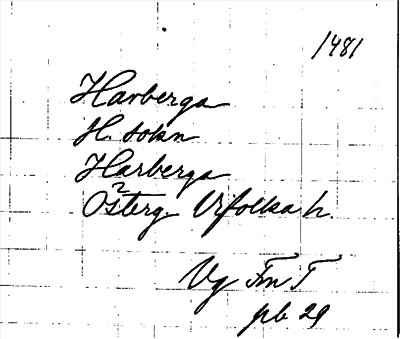 1481
Harberga
H. sokn
Harberga
2
Österg. Vifolka h.
Vg Fm T
pb 29